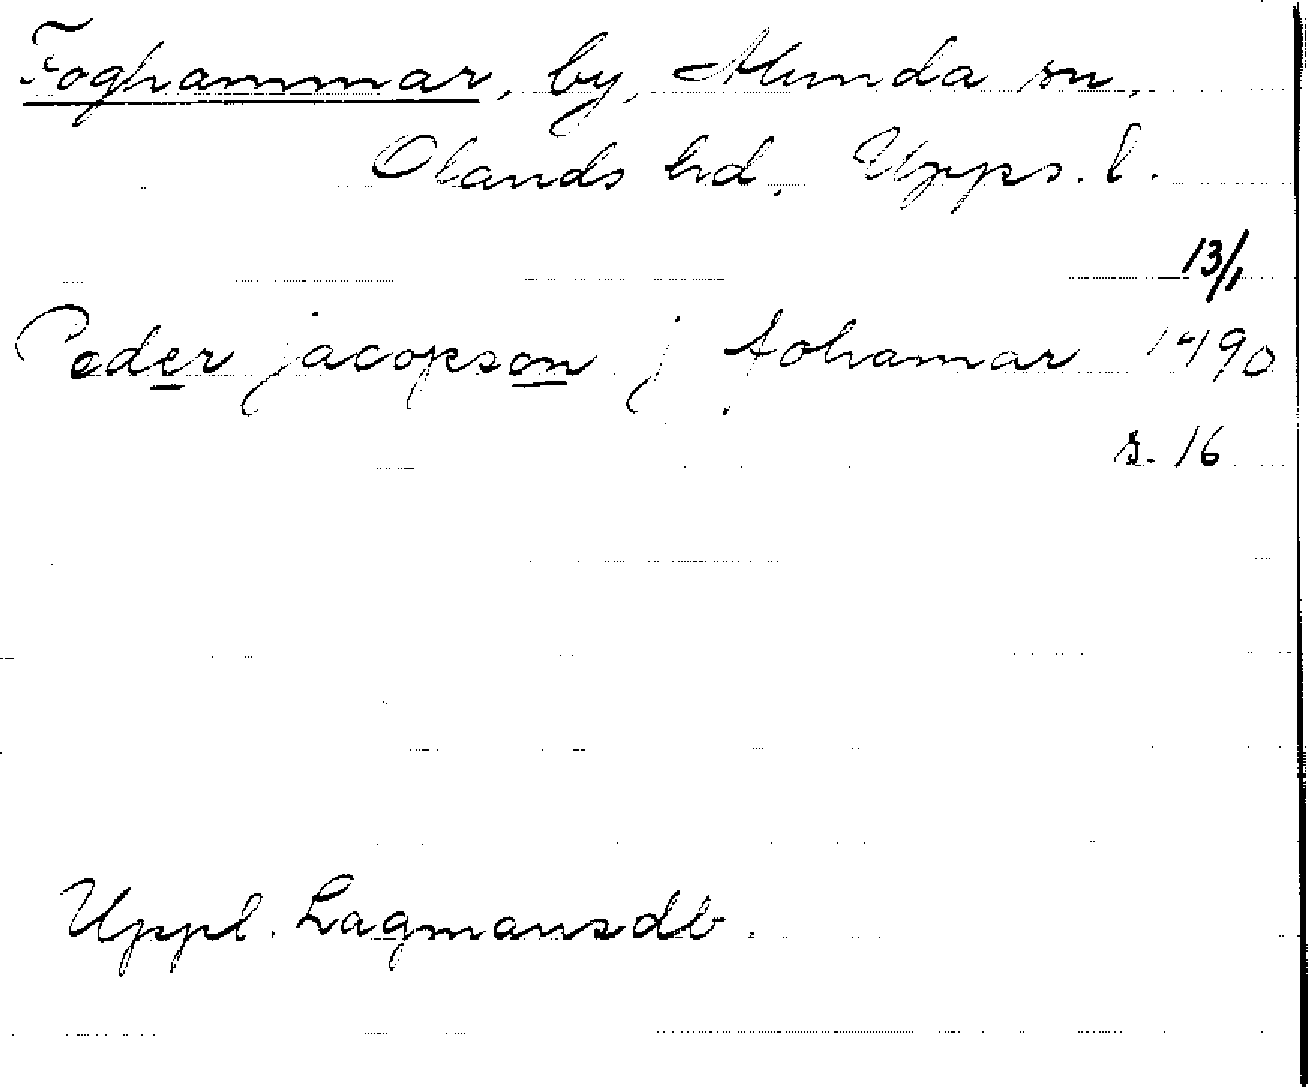 Foghammar, by, Alunda sn,
Olands hd. Upps. l.
13/1
Peder jacopson j fohamar 1490
s. 16
Uppl. Lagmansdb.